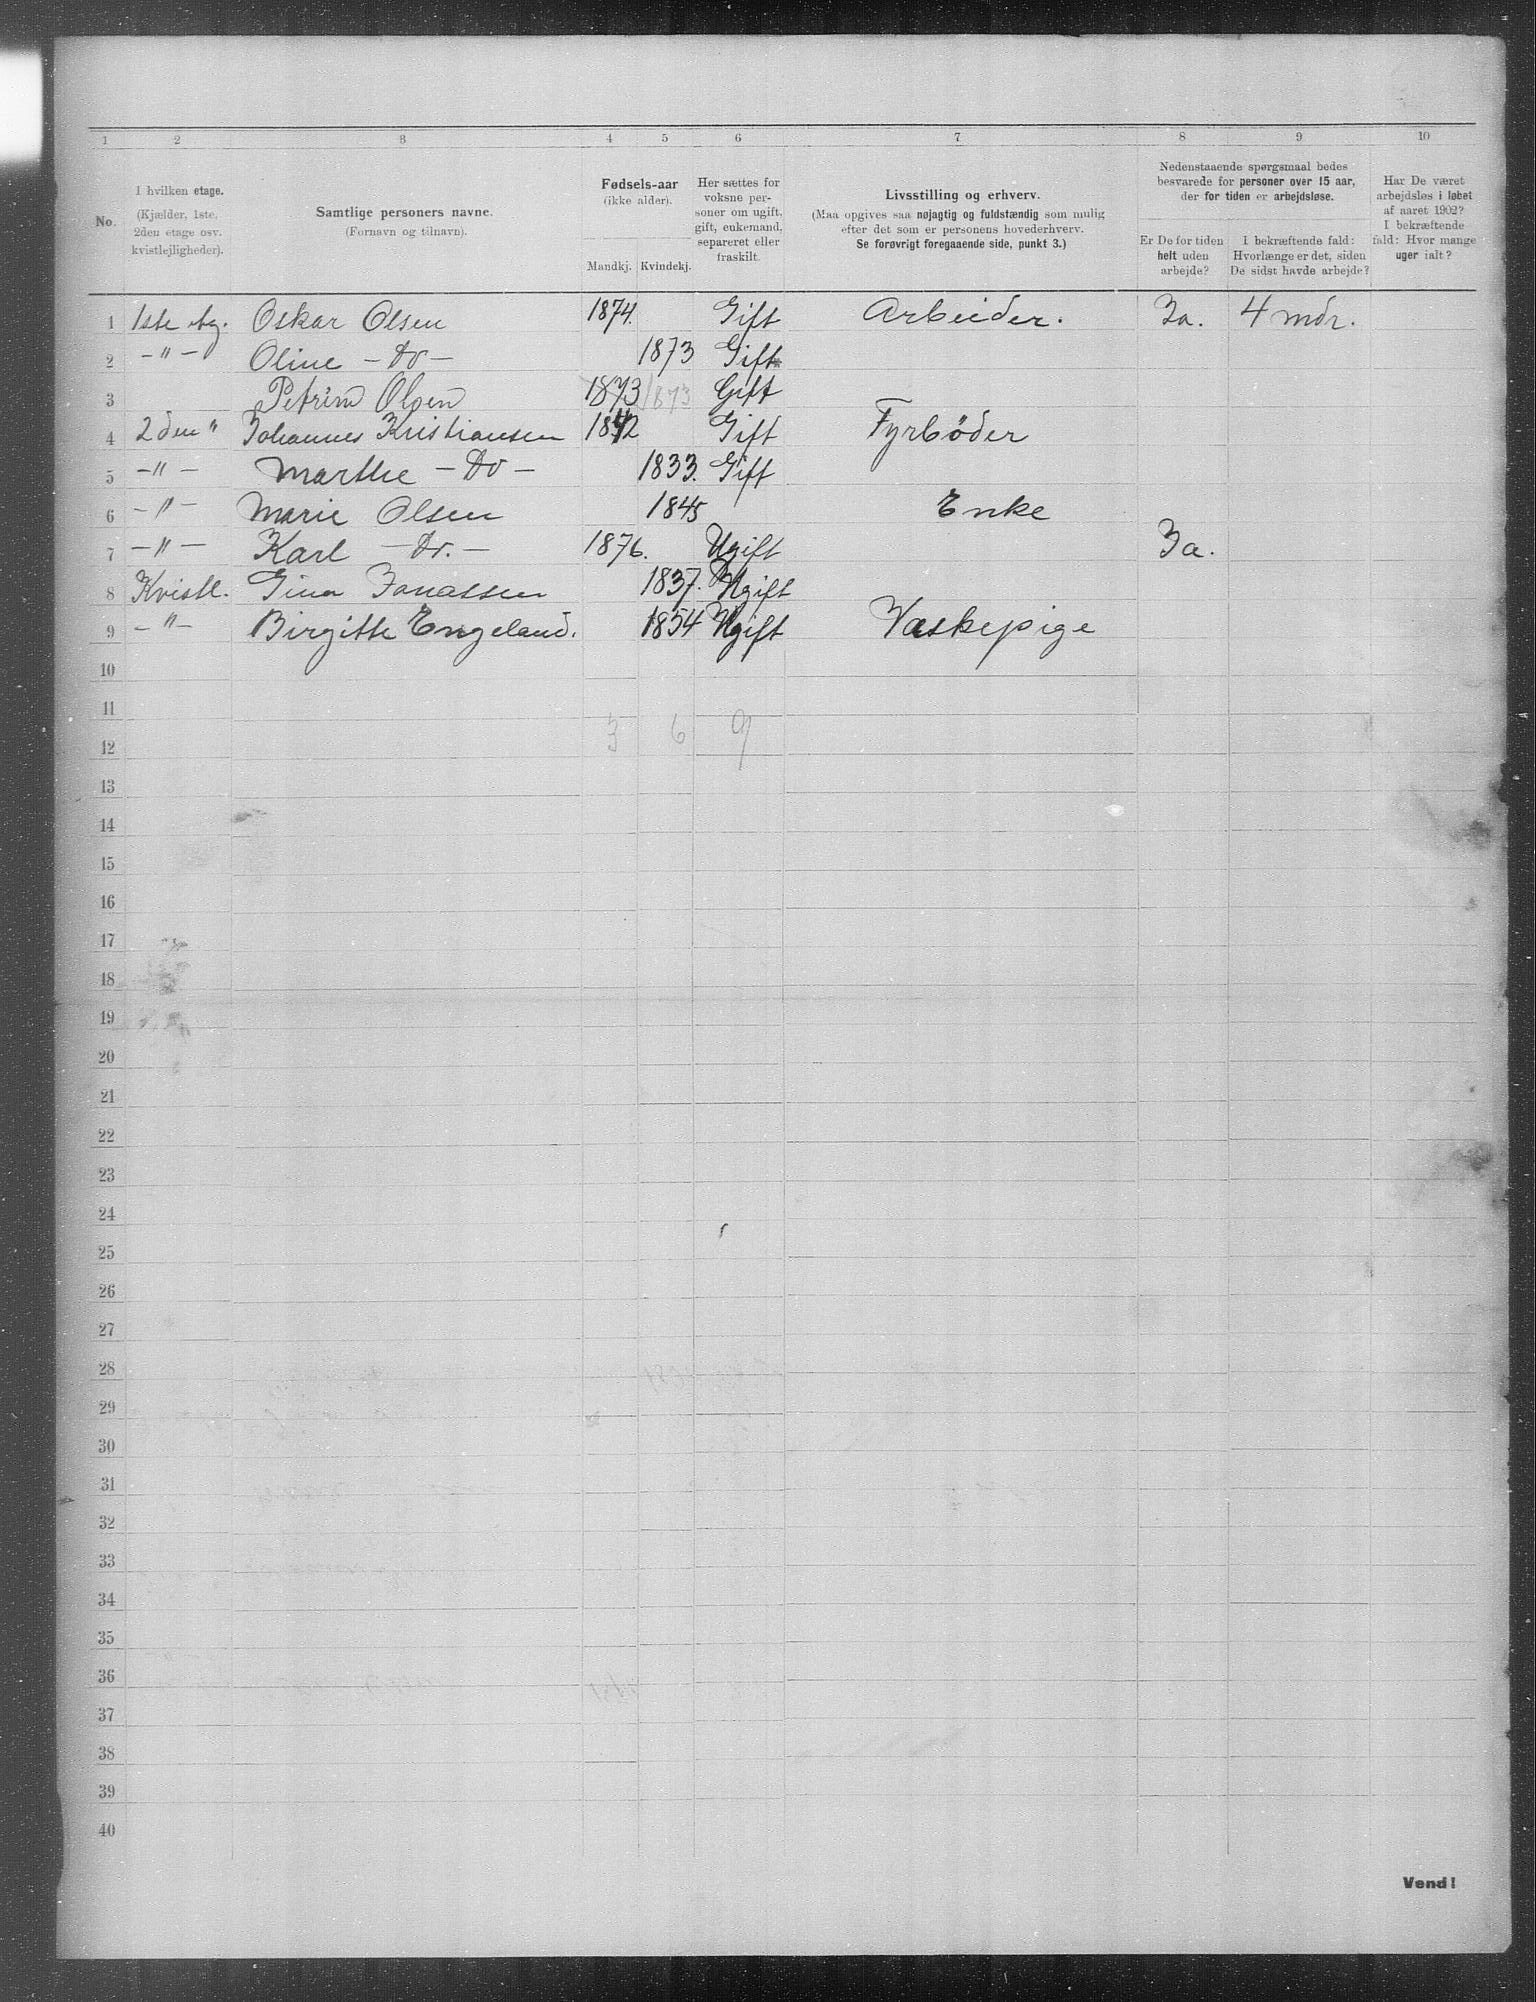 1 2 3 4 5 6 7 8 9 10
No.
I hvilken etage.
(Kjælder, 1ste,
2den etage osv.
kvistlejligheder).
Samtlige personers navne.
(Fornavn og tilnavn).
Fødsels-aar
(ikke alder).
Mandkj. Kvindekj.
Her sættes for
voksne per-
soner om ugift,
gift, enkemand,
separeret eller
fraskilt.
Livsstilling og erhverv.
(Maa opgives saa nøjagtig og fuldstændig som mulig
efter det som er personens hovederhverv.
Se forøvrigt foregaaende side, punkt 3.)
Nedenstaaende spørgsmaal bedes
besvarede for personer over 15 aar,
der for tiden er arbejdsløse.
Er De for tiden
helt uden
arbejde?
I bekræftende fald:
Hvorlænge er det, siden
De sidst havde arbejde?
Har De været
arbejdsløs i løbet
af aaret 1902?
I bekræftende
fald: Hvor mange
uger ialt?
1 1ste etg. Oskar Olsen 1874. Gift Arbeider. Ja. 4 mdr.
2 -"- Oline - Do - 1873 Gift
3 Petrine Olsen 1873 1873 Gift
4 2den " Johannes Kristiansen 1842 Gift Fyrbøder
5 -"- Marthe - Do - 1833. Gift
6 -"- Marie Olsen 1845 Enke
7 -"- Karl - Do. - 1876. Ugift Ja.
8 Kvistl. Gina Jonassen 1837. Ugift
9 -"- Birgitte Engeland. 1854 Ugift Vaskepige
10
11
12 3 6 9
13
14
15
16
17
18
19
20
21
22
23
24
25
26
27
28
29
30
31
32
33
34
35
36
37
38
39
40
Vend!